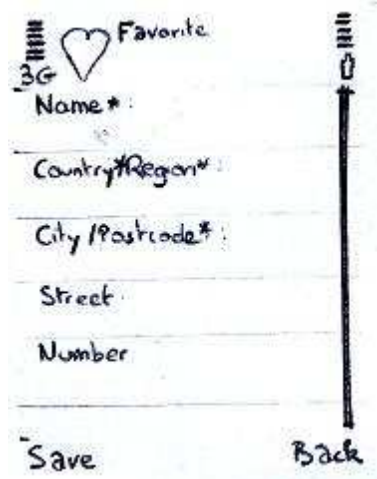 Favorite
3G
Name* :
Country*Region* :
City /Postcode* :
Street
Number
Save
Back